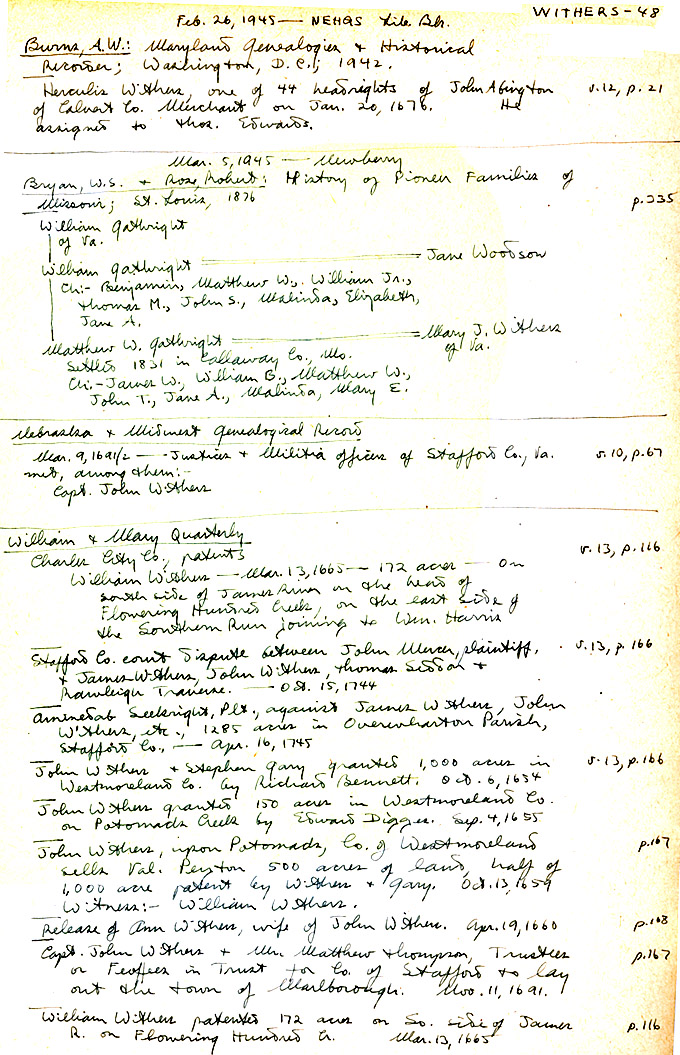 WITHERS-48
Feb. 26, 1945 — NEHGS Lib. Bk.
Burns, A.W.: Maryland Genealogies & Historical
Recorder; Washington, D.C.; 1942.
Herculis Withers, one of 44 headrights of John Abington v.12, p.21
of Calvert Co. Merchant on Jan. 20, 1676. He
assigned to Thos. Edwards.
Mar. 5, 1945 — Newberry
Bryan, W.S. & Rose, Robert: History of Pioneer Families of
Missouri; St. Louis, 1876 p.335
William Gathright
of Va.
William Gathright = Jane Woodson
Ch:- Benjamin, Matthew W., William Jr.,
Thomas M., John S., Malinda, Elizabeth,
Jane A.
Matthew W. Gathright = Mary J. Withers
of Va.
Settled 1831 in Callaway Co., Mo.
Ch:- James W., William B., Matthew W.,
John T., Jane A., Malinda, Mary E.
Nebraska & Midwest Genealogical Record
Mar. 9, 1691/2 — Justices & Militia officers of Stafford Co., Va. v.10, p.67
met, among them:-
Capt. John Withers
William & Mary Quarterly
Charles City Co., patents v.13, p.116
William Withers — Mar. 13, 1665 — 172 acres — on
south side of James River on the head of
Flowering Hundred Creek, on the east side of
the Southern Run joining to Wm. Harris
Stafford Co. court dispute between John Mercer, plaintiff, v.13, p.166
& James Withers, John Withers, Thomas Seddon &
Rawleigh Traverse. — Oct. 15, 1744
Aminedab Seekright, Plt., against James Withers, John
Withers, etc., 1285 acres in Overwharton Parish,
Stafford Co., — Apr. 16, 1745
John Withers & Stephen Gary granted 1,000 acres in v.13, p.166
Westmoreland Co. by Richard Bennett. Oct. 6, 1654
John Withers granted 150 acres in Westmoreland Co.
on Potomack Creek by Edward Digges. Sep. 4, 1655
John Withers, upon Potomack, Co. of Westmoreland p.167
sells Val. Peyton 500 acres of land, half of
1,000 acre patent by Withers & Gary. Oct. 13, 1659
Witness:- William Withers.
Release of Ann Withers, wife of John Withers. Apr. 19, 1660 p.168
Capt. John Withers & Mr. Matthew Thompson, Trustees p.167
or Feoffees in Trust for Co. of Stafford to lay
out the town of Marlborough. Nov. 11, 1691.
William Withers patented 172 acres on So. side of James p.116
R. on Flowering Hundred Cr. Mar. 13, 1665